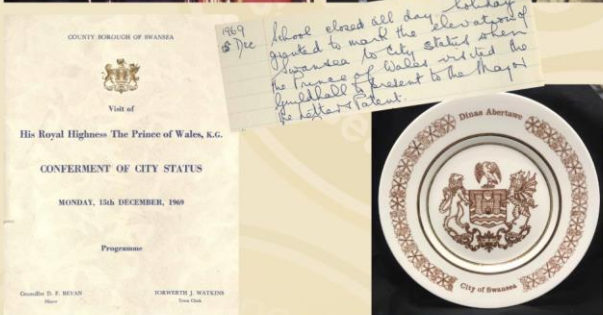 COUNTY BOROUGH OF SWANSEA
Visit of
His Royal Highness The Prince of Wales, K.G.
CONFERMENT OF CITY STATUS
MONDAY, 15th DECEMBER, 1969
Programme
Councillor D. F. BEVAN
Mayor
IORWERTH J. WATKINS
Town Clerk
1969
Dec
School closed all day, holiday
granted to mark the elevation of
Swansea to City Status when
the Prince of Wales visited the
Guildhall to present to the Mayor
the Letters Patent.
Dinas Abertawe
City of Swansea